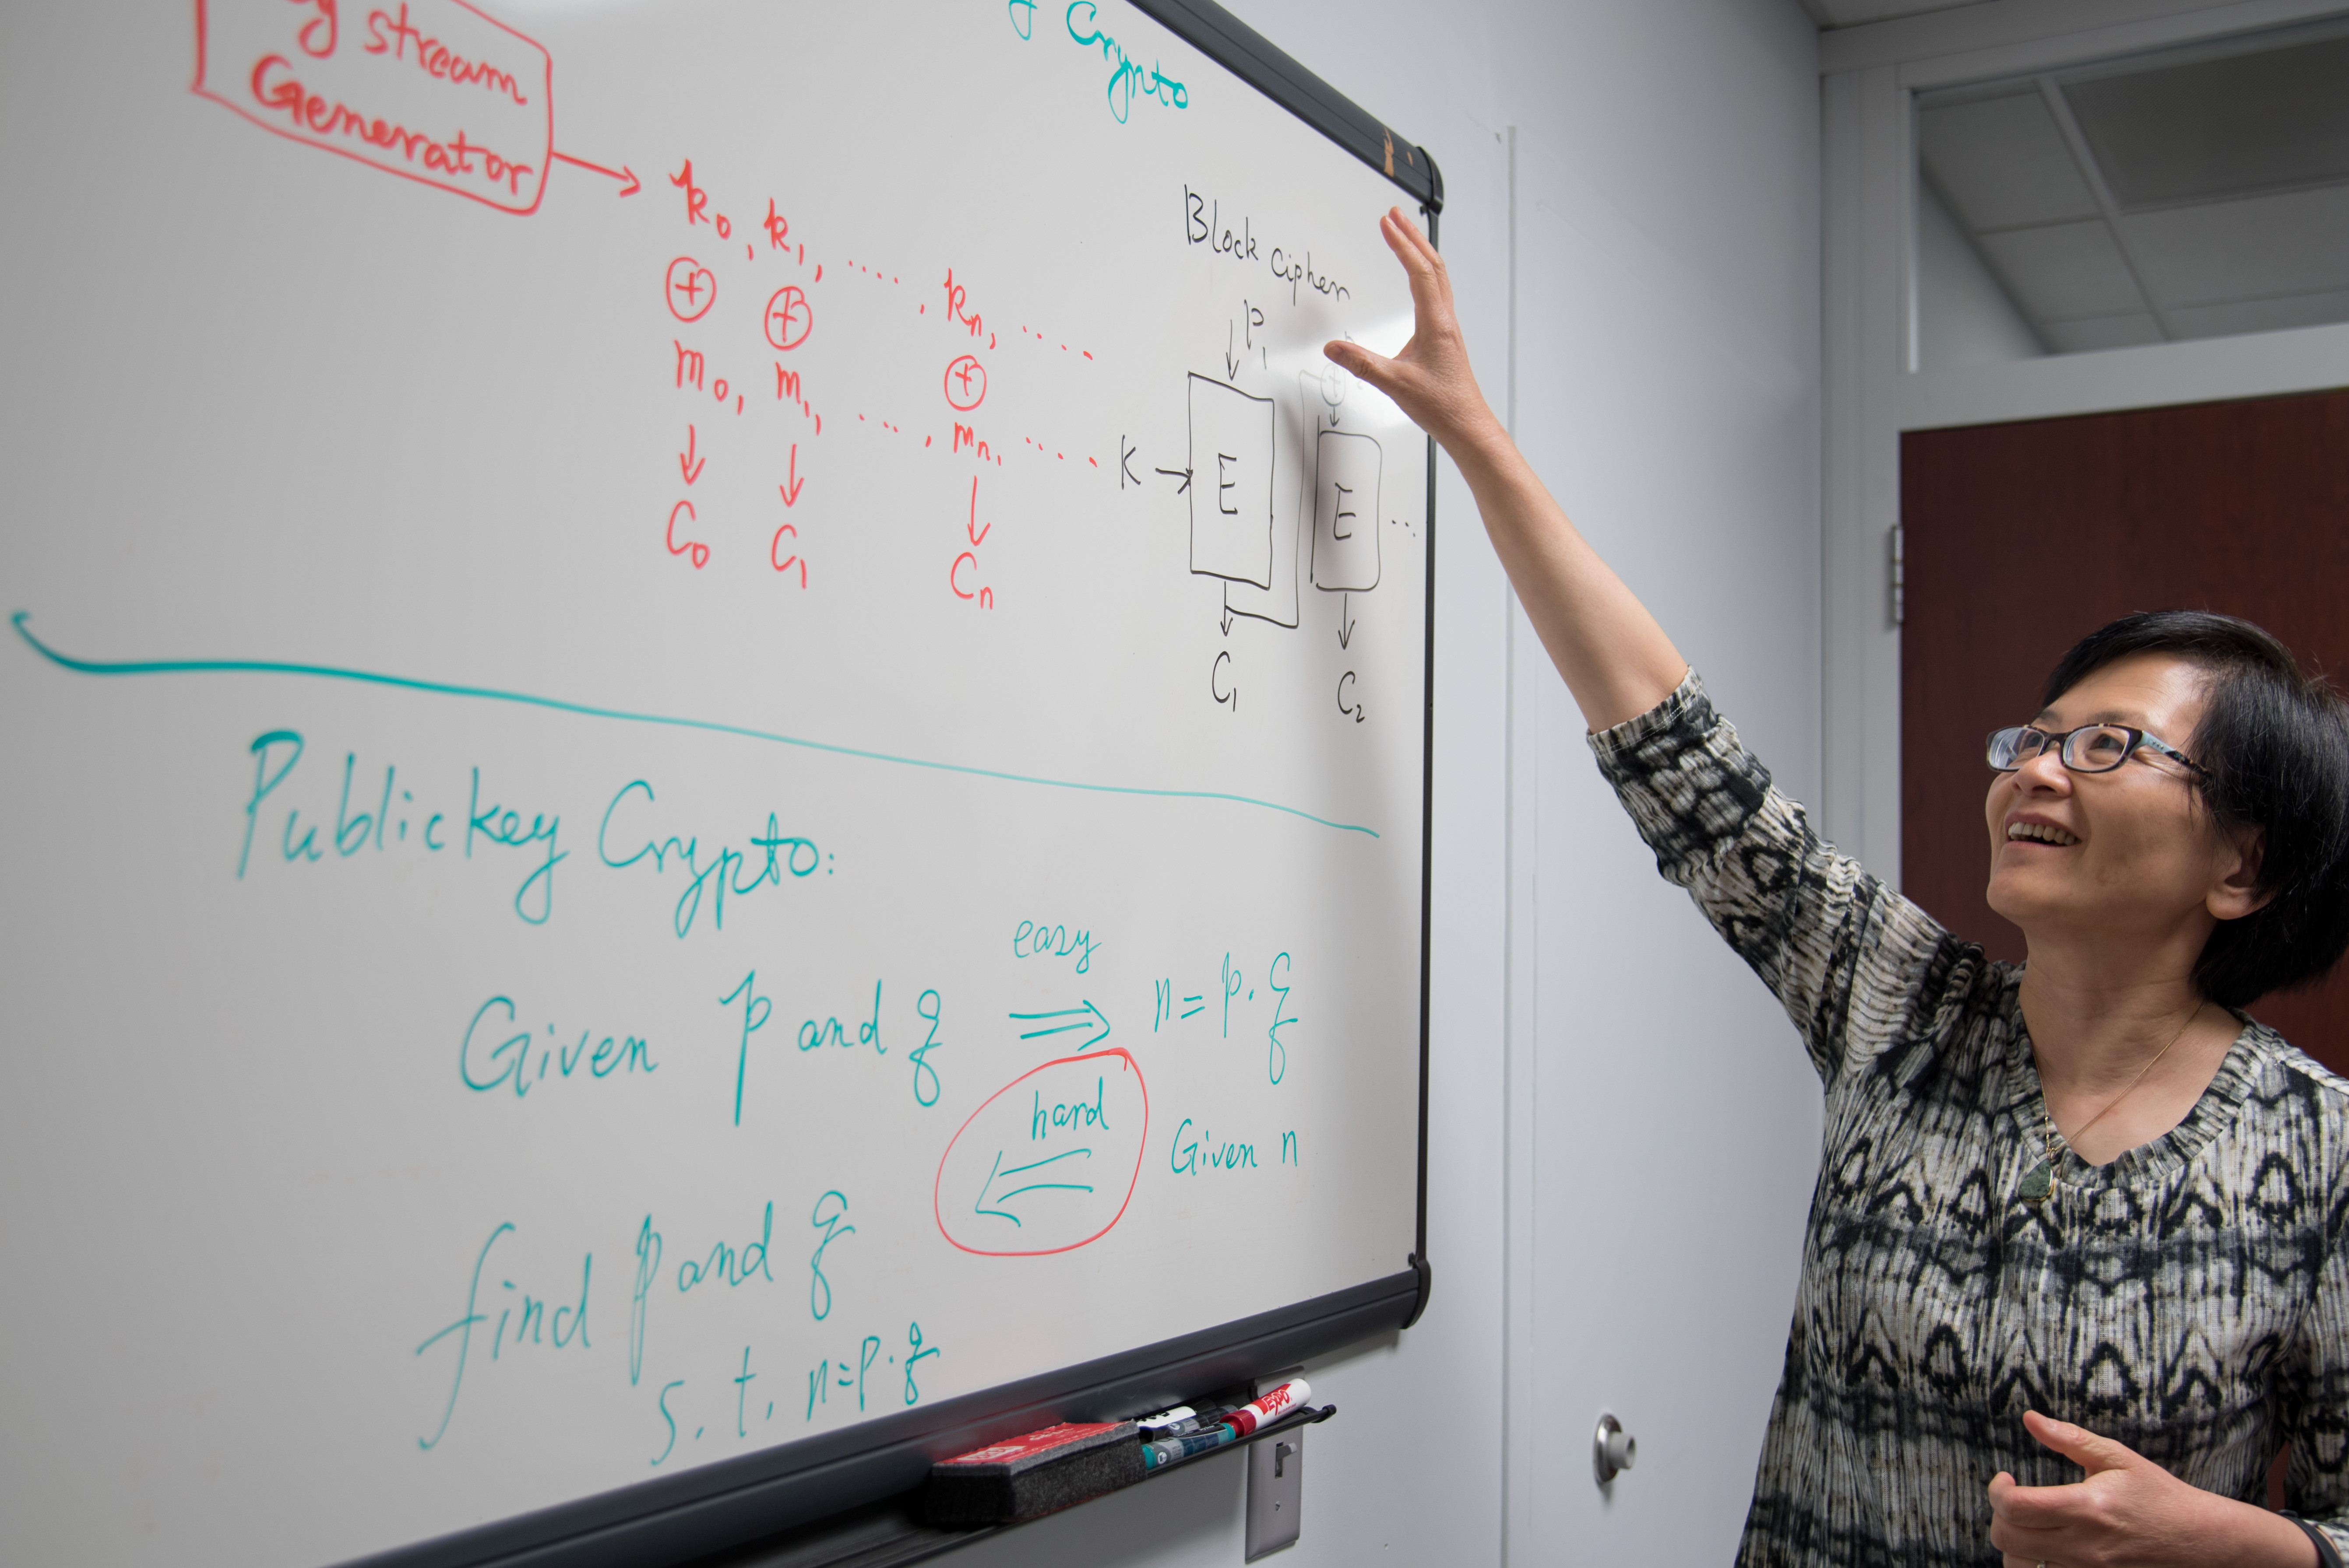 Crypto
stream
Generator
k₀, k₁, ..... , kₙ, .....
⊕ ⊕ ⊕
m₀, m₁, ..... , mₙ, .....
↓ ↓ ↓
C₀ C₁ Cₙ
Block cipher
P₁
K → E E ...
C₁ C₂
Public key Crypto:
easy
Given p and q ⇒ n = p · q
hard
⇐ Given n
find p and q
s. t. n = p · q
EXPO